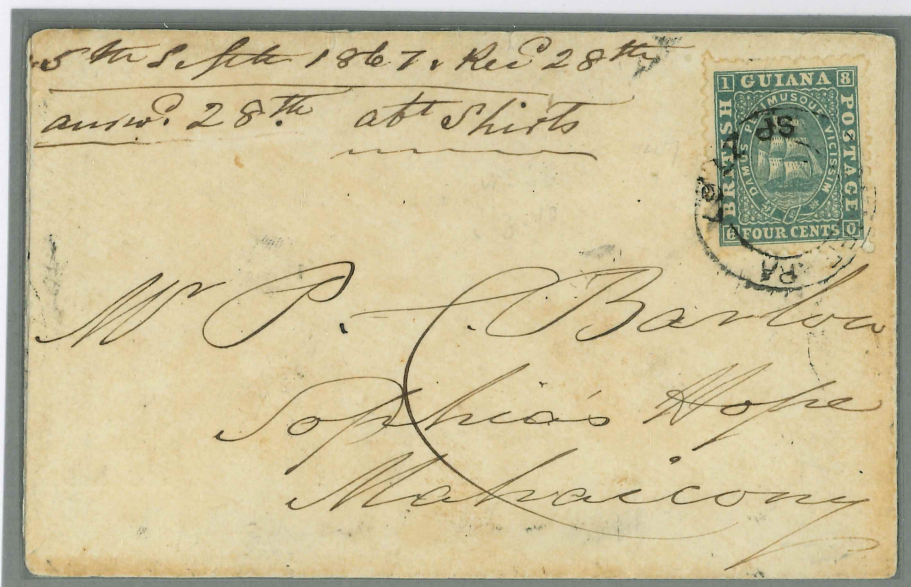 5th Septr 1867. Recd 28th
answd. 28th. abt Shirts
1 GUIANA 8
BRITISH
POSTAGE
DAMUS PETIMUSQUE VICISSIM
6 FOUR CENTS 0
SP
RA
Mr P. L. Barlow
Sophia's Hope
Mahaicony